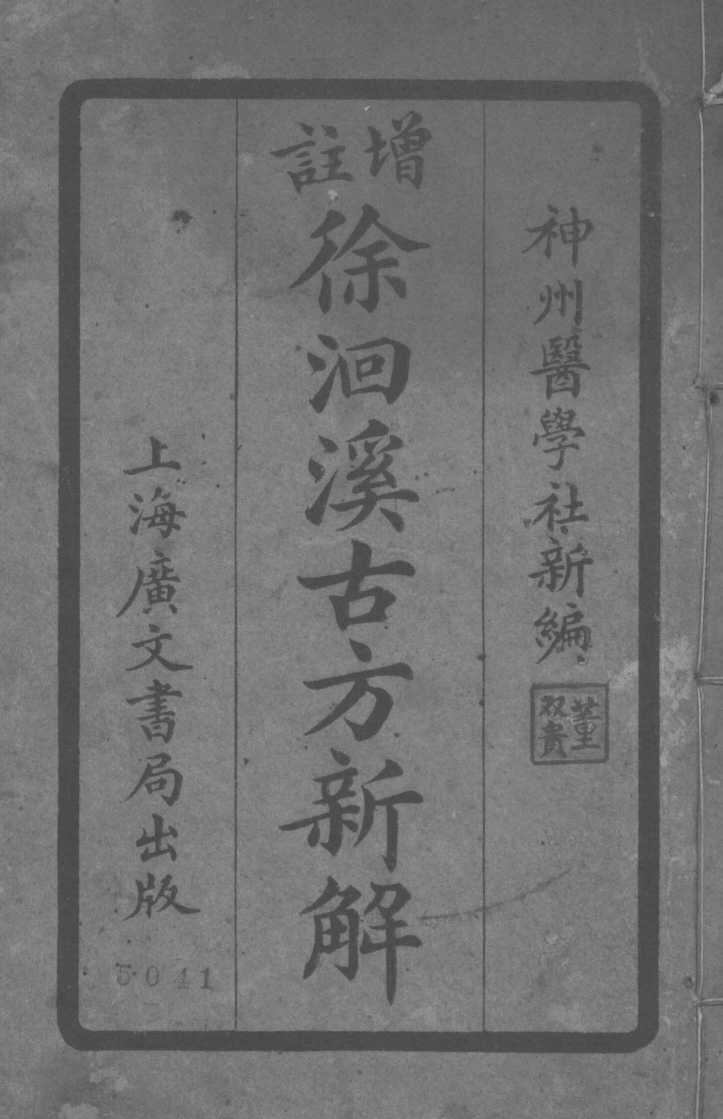 神州醫學社新編
董双貴
增註
徐洄溪古方新解
上海廣文書局出版
5041